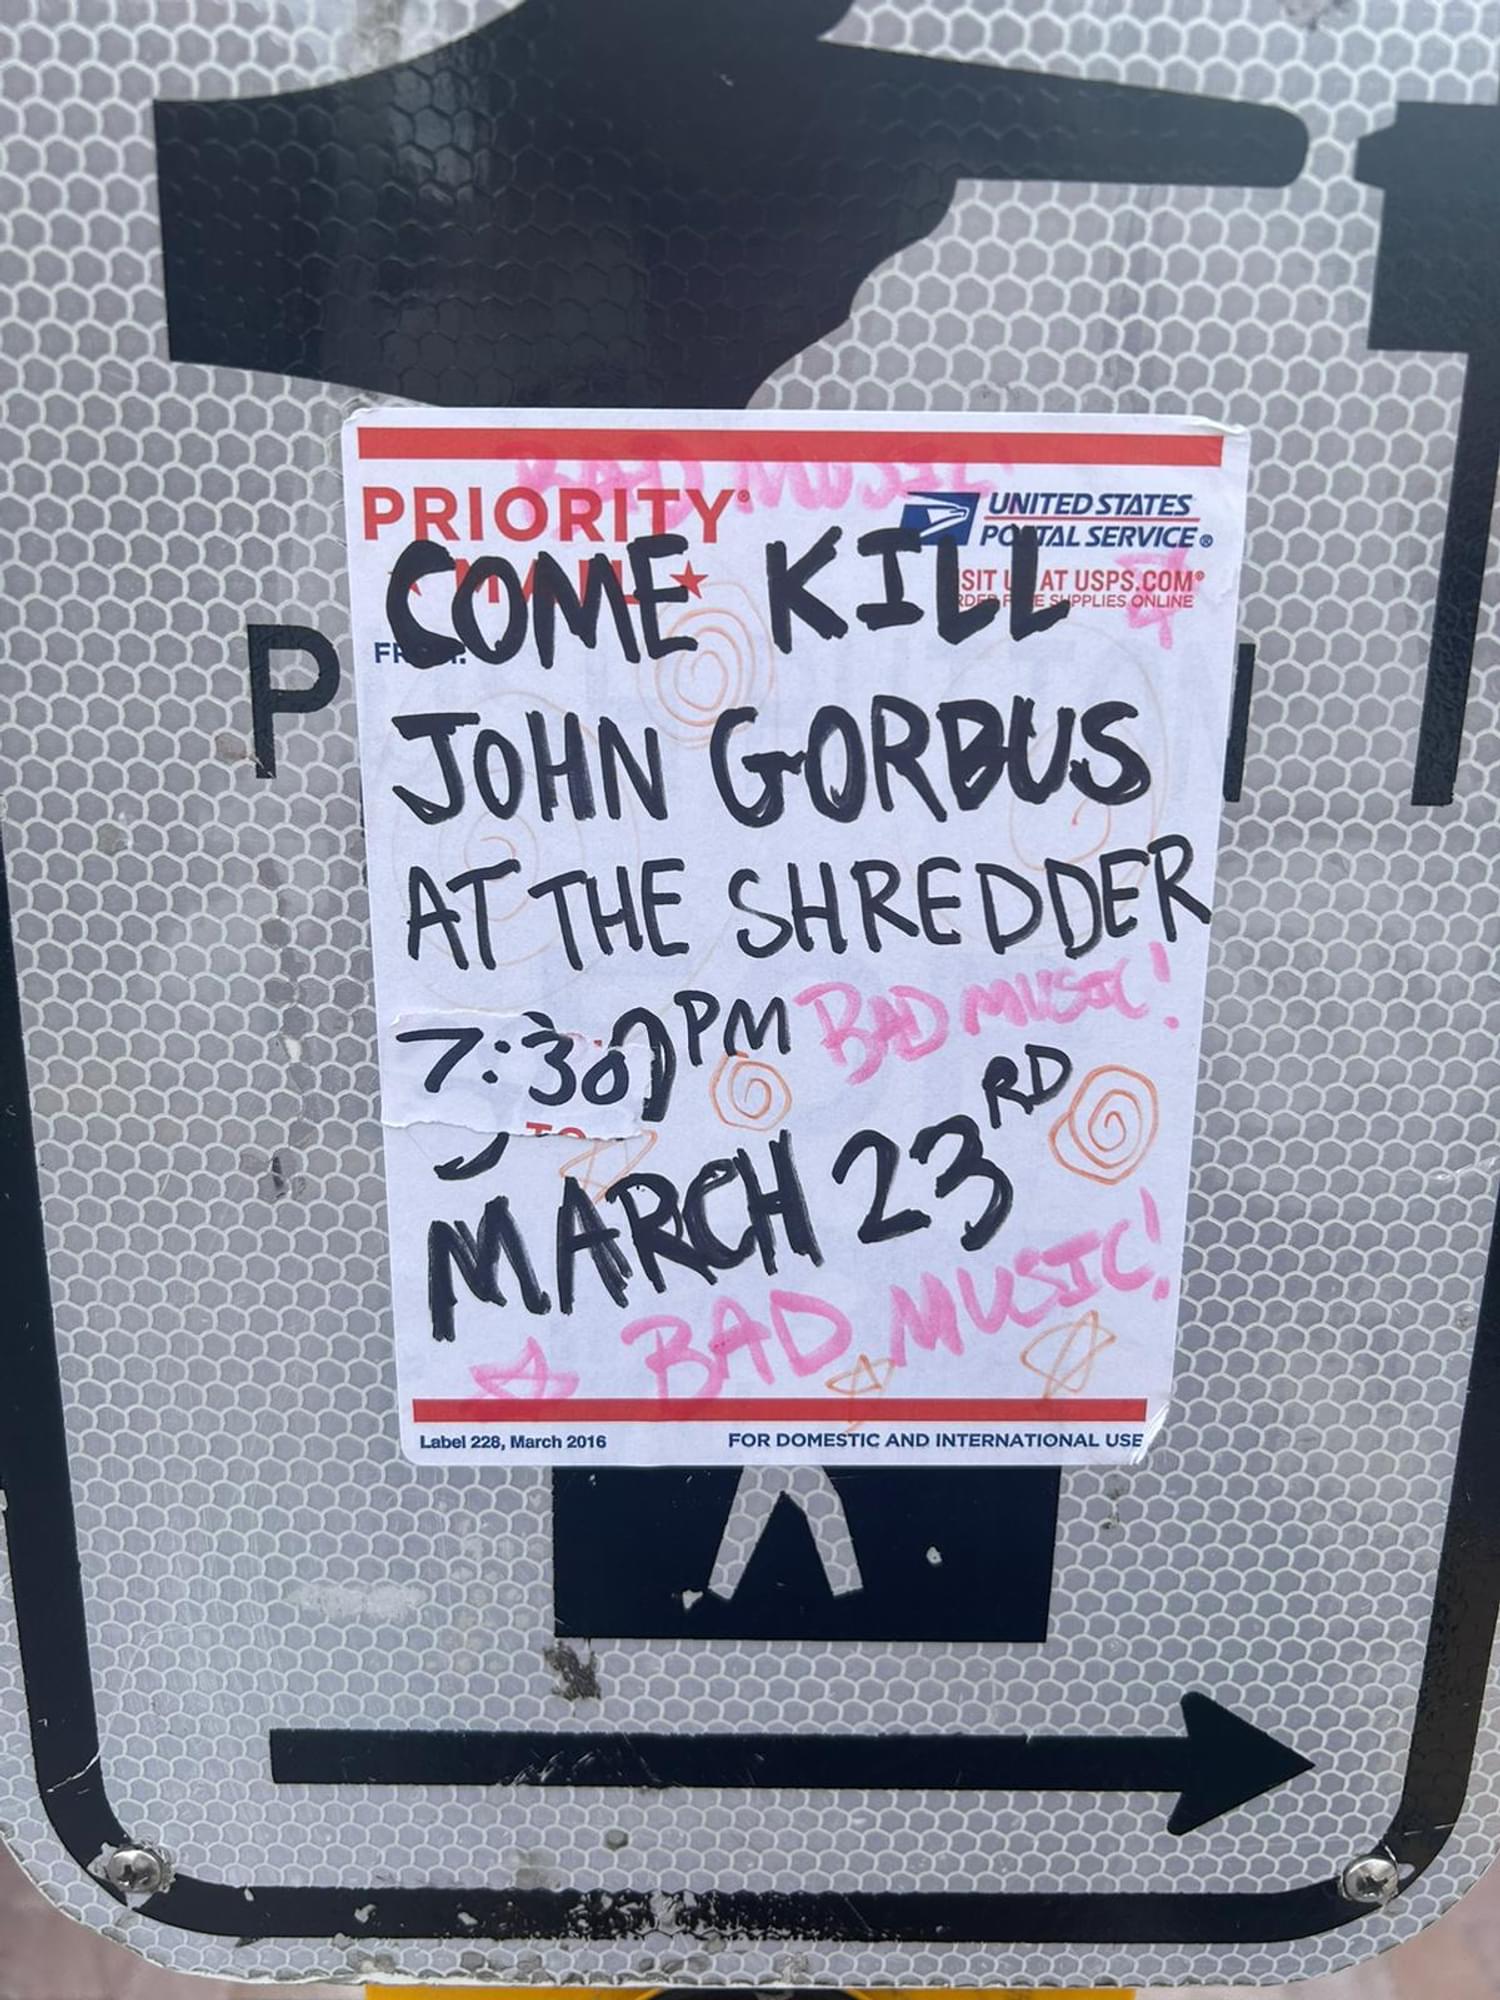 BAD MUSIC!
PRIORITY®
UNITED STATES
POSTAL SERVICE®
COME KILL
AT USPS.COM®
SUPPLIES ONLINE
JOHN GORBUS
AT THE SHREDDER
7:30 PM BAD MUSIC!
TO
MARCH 23RD
BAD MUSIC!
Label 228, March 2016
FOR DOMESTIC AND INTERNATIONAL USE